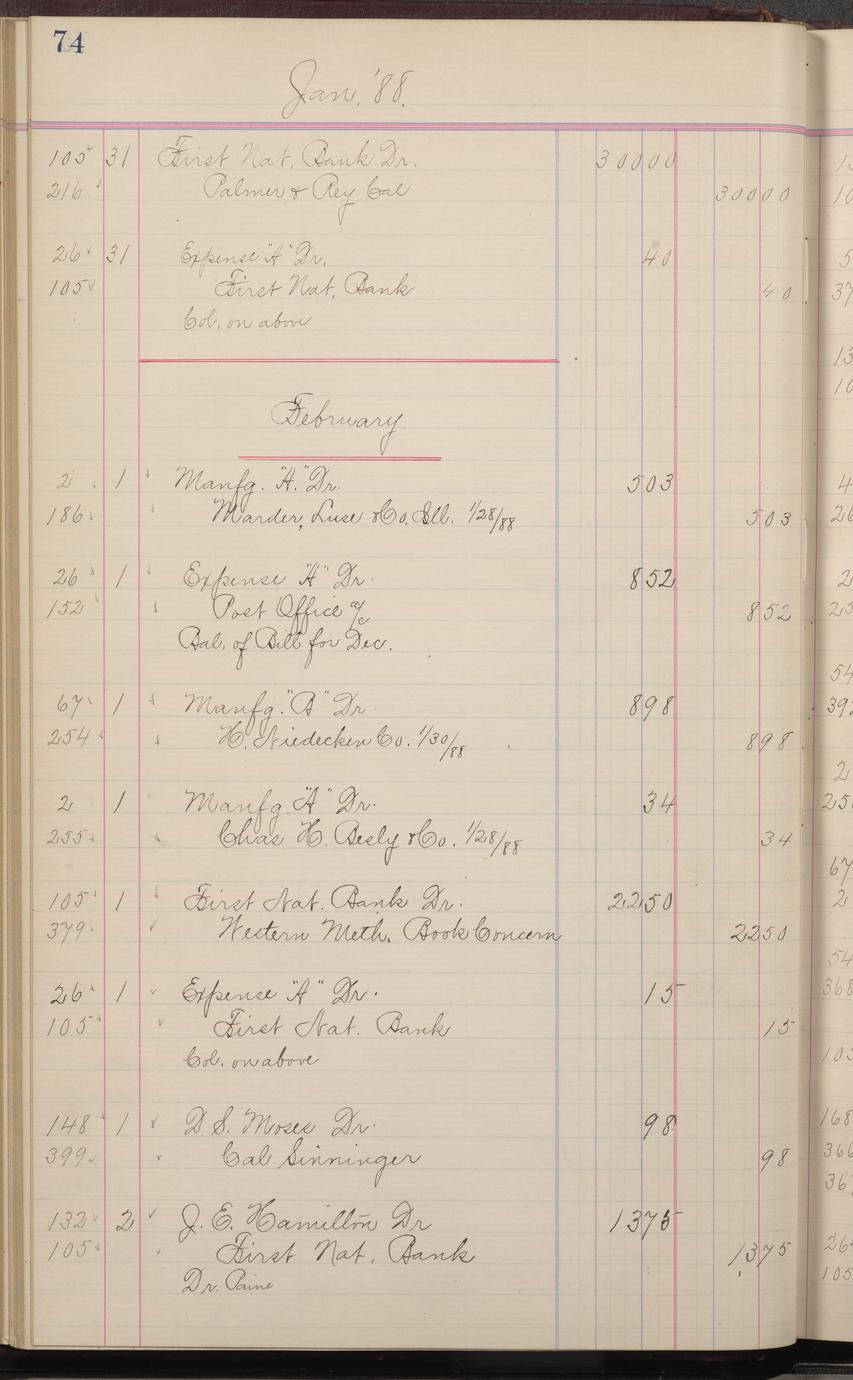 74
Jan. '88.
105 31 First Nat. Bank Dr. 30000
216 Palmer & Rey Cal 30000
26 31 Expense "A" Dr. 40
105 First Nat. Bank 40
Col. on above
February.
2 1 Manfg. "A." Dr. 503
186 Marder, Luse & Co. Ill. 1/28/88 503
26 1 Expense "A" Dr. 852
152 Post Office a/c 852
Bal. of Bill for Dec.
67 1 Manfg. "B" Dr 898
254 H. Niedecken Co. 1/30/88 898
2 1 Manfg. "A" Dr. 34
255 Chas H. Besly & Co. 1/28/88 34
105 1 First Nat. Bank Dr. 2250
379 Western Meth. Book Concern 2250
26 1 Expense "A" Dr. 15
105 First Nat. Bank 15
Col. on above
148 1 D. S. Moses Dr. 98
399 Cal Sinninger 98
132 2 J. E. Hamilton Dr 1375
105 First Nat. Bank 1375
Dr. Paine